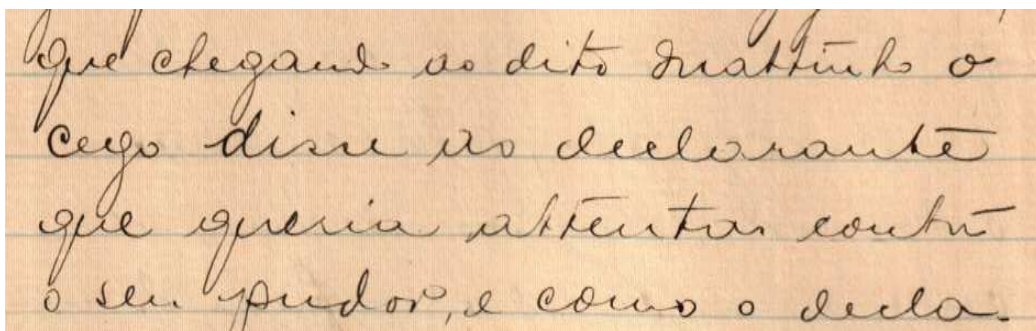 que chegando ao dito mattinho o
cego disse ao declarante
que queria attentar contra
o seu pudor, e como o decla-